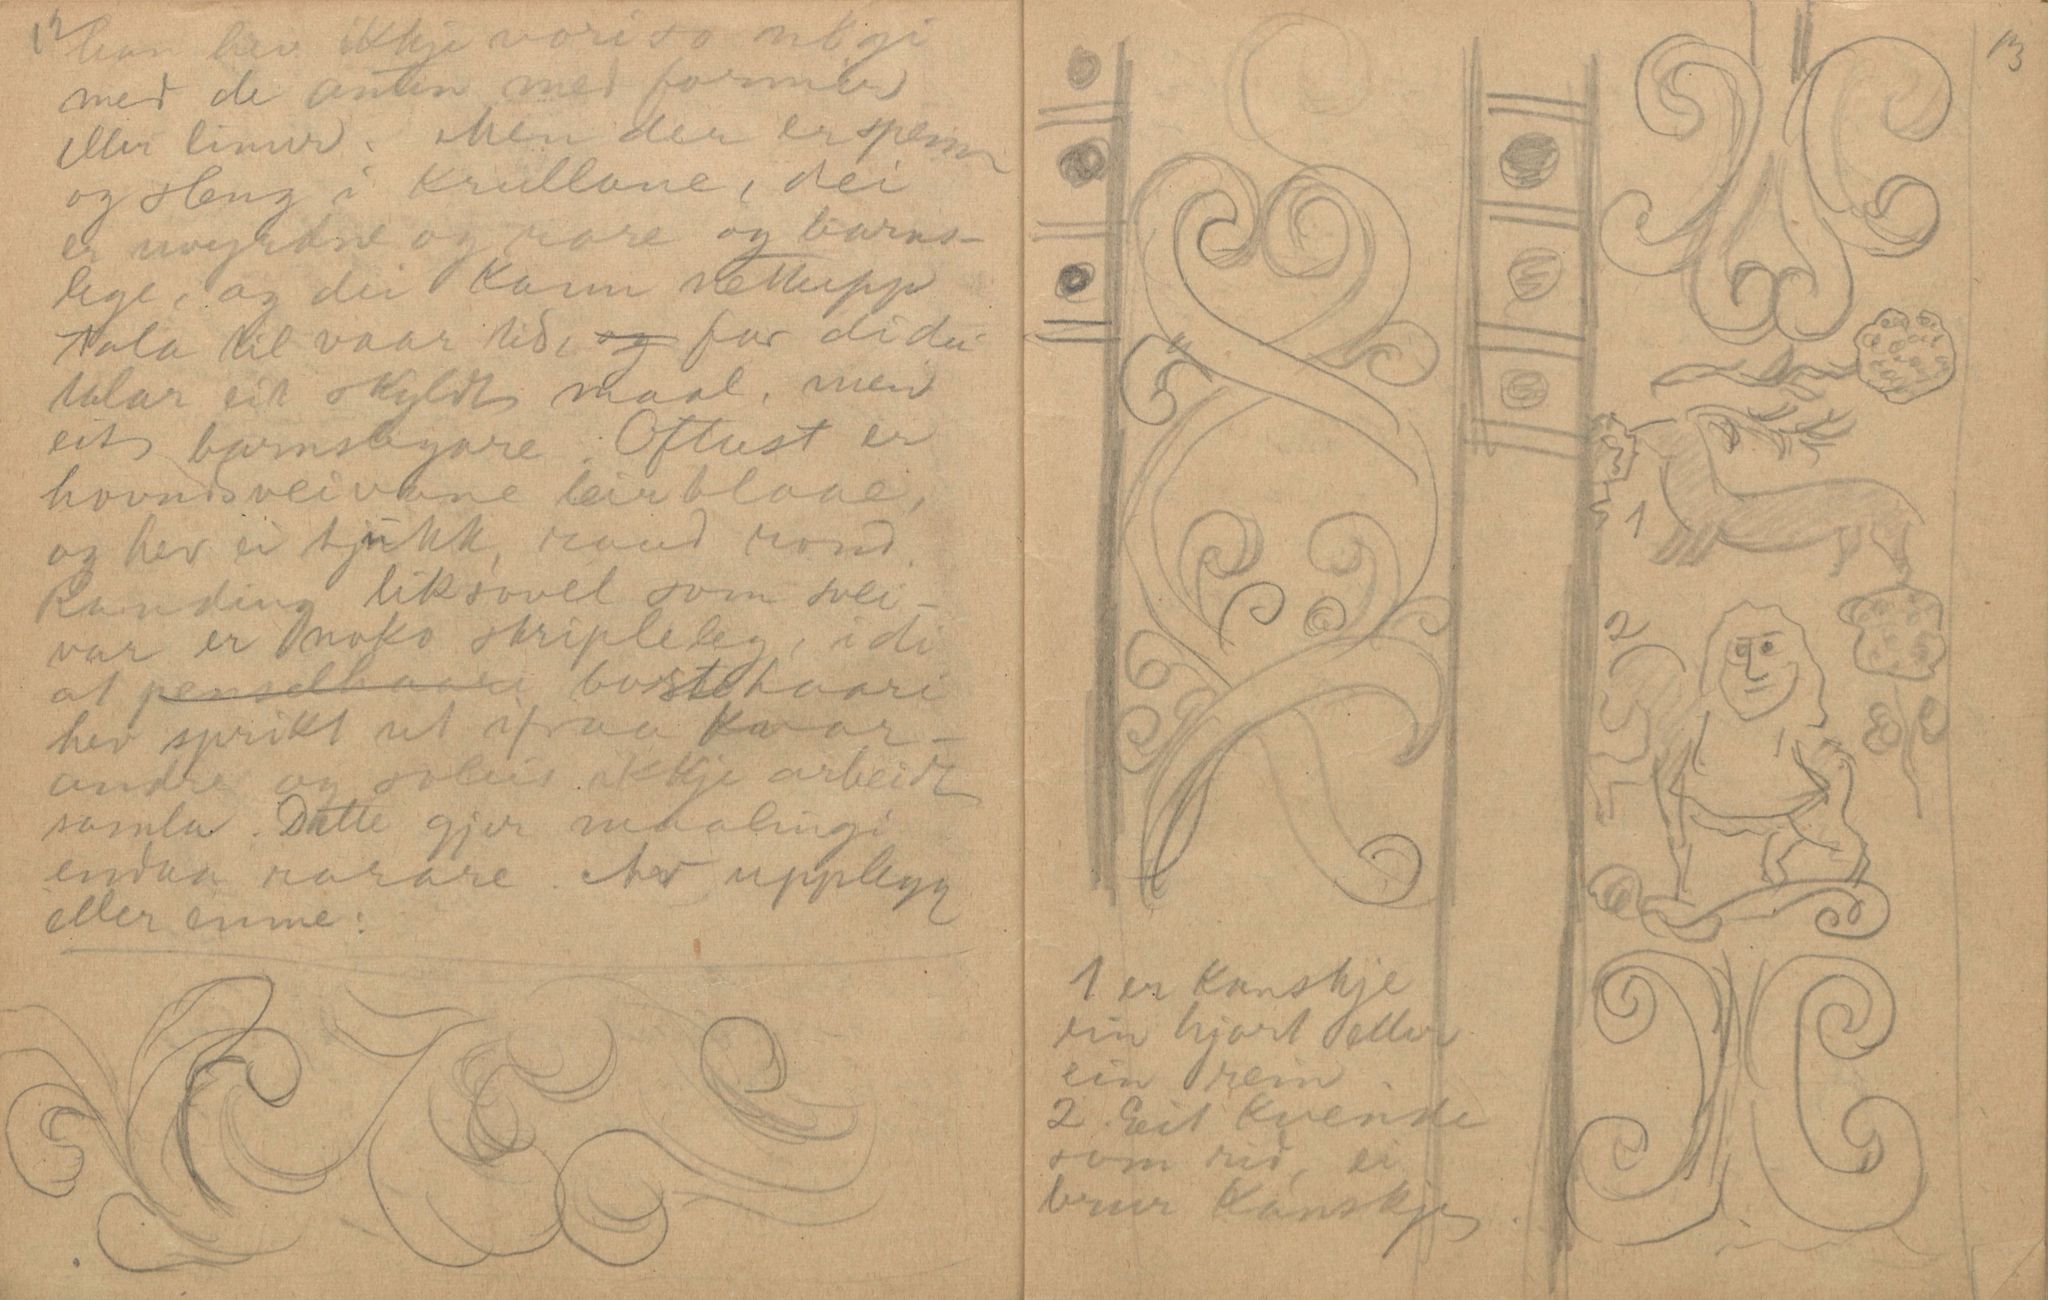 12
han hev ikkje vori so nögi
med de anten med formier
eller linur. Men der er spenn
og sleng i Krullane, dei
er uvyrdne og rare og barns-
lege, og dei Kann nettupp
tala til vaar tid, og for di dei
talar eit skyldt maal, men
eit barnslegare. Oftast er
hovudsveivane leirblaae,
og hev ei tjukk, raud rond.
Randing liksovel som svei-
var er noko stripleleg, i di
at penselhaari bustehaari
hev sprikt ut ifraa kvar-
andre og soleis ikkje arbeidt
samla. Dette gjer maalingi
endaa rarare. Av upplegg
eller emne:
13
1
2
1 er Kanskje
ein hjort eller
ein rein.
2. Eit Kvende
som rid, ei
brur Kanskje.